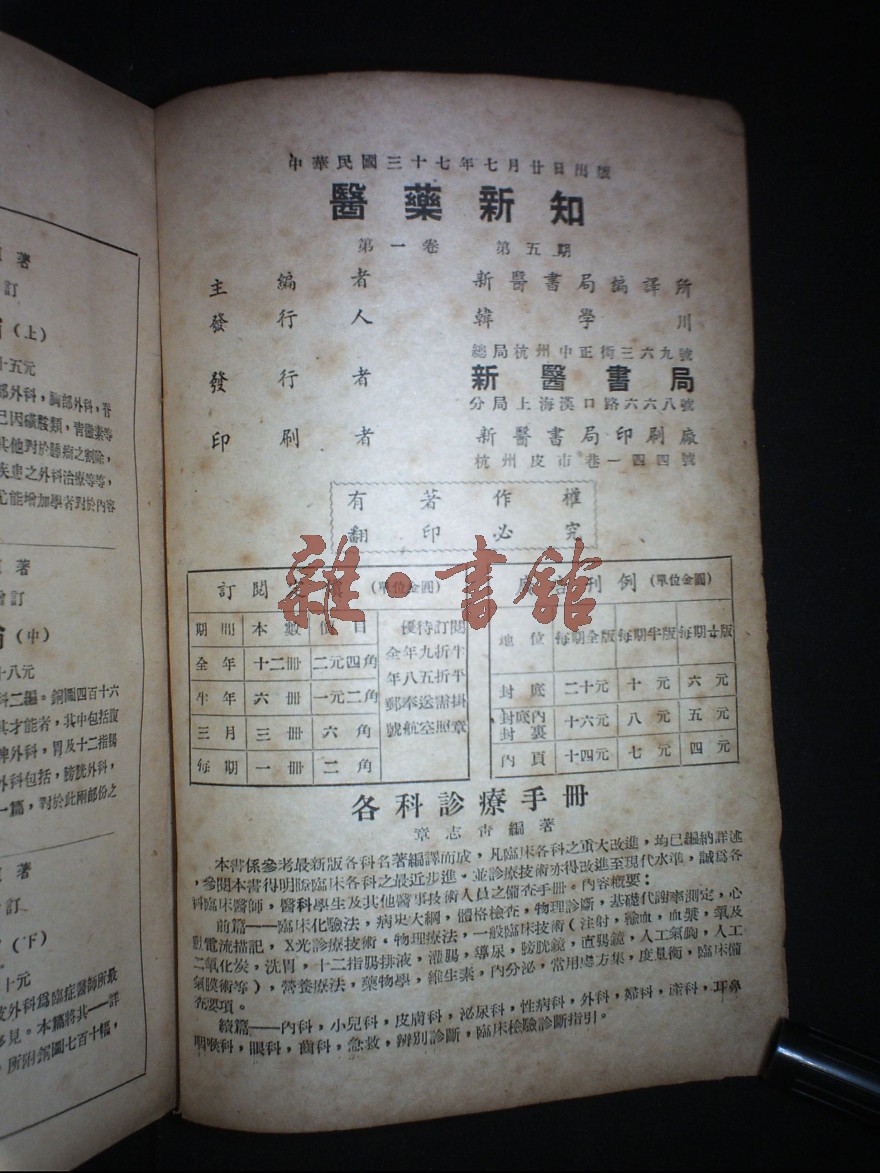 中華民國三十七年七月廿日出版
醫藥新知
第一卷 第五期
主編者 新醫書局編譯所
發行人 韓學川
總局杭州中正街三六九號
發行者 新醫書局
分局上海漢口路六六八號
印刷者 新醫書局印刷廠
杭州皮市巷一四四號
有著作權
翻印必究
雜·書館
訂閱 (單位金圓)
期間 本數 價目
全年 十二冊 二元四角
半年 六冊 一元二角
三月 三冊 六角
每期 一冊 二角
優待訂閱
全年九折半
年八五折平
郵奉送需掛
號航空照章
廣告刊例 (單位金圓)
地位 每期全版 每期半版 每期¼版
封底 二十元 十元 六元
封底內 封裏 十六元 八元 五元
內頁 十四元 七元 四元
各科診療手冊
章志靑編著
本書係參考最新版各科名著編譯而成,凡臨床各科之重大改進,均已編納詳述
,參閱本書得明瞭臨床各科之最近步進。並診療技術亦得改進至現代水準,誠為各
科臨床醫師,醫科學生及其他醫事技術人員之備查手冊。內容概要:
前篇——臨床化驗法,病史大綱,體格檢查,物理診斷,基礎代謝率測定,心
動電流描記,X光診療技術。物理療法,一般臨床技術(注射,輸血,血漿,氧及
二氧化炭,洗胃,十二指腸排液,灌腸,導尿,膀胱鏡,直腸鏡,人工氣胸,人工
氣腹術等),營養療法,藥物學,維生素,內分泌,常用處方集,度量衡,臨床備
查要項。
續篇——內科,小兒科,皮膚科,泌尿科,性病科,外科,婦科,產科,耳鼻
咽喉科,眼科,齒科,急救,辨別診斷,臨床檢驗診斷指引。
著
訂
(上)
十五元
部外科,胸部外科,脊
已因磺胺類,靑黴素等
其他對於腫瘤之割除,
疾患之外科治療等等,
尤能增加學者對於內容
著
增訂
(中)
十八元
科二編。銅圖四百十六
其才能者,其中包括腹
脾外科,胃及十二指腸
外科包括,膀胱外科,
一篇,對於此兩部份之
著
訂
(下)
十元
皮外科為臨症醫師所最
多見。本篇將北一詳
。所附銅圖七百十幅,